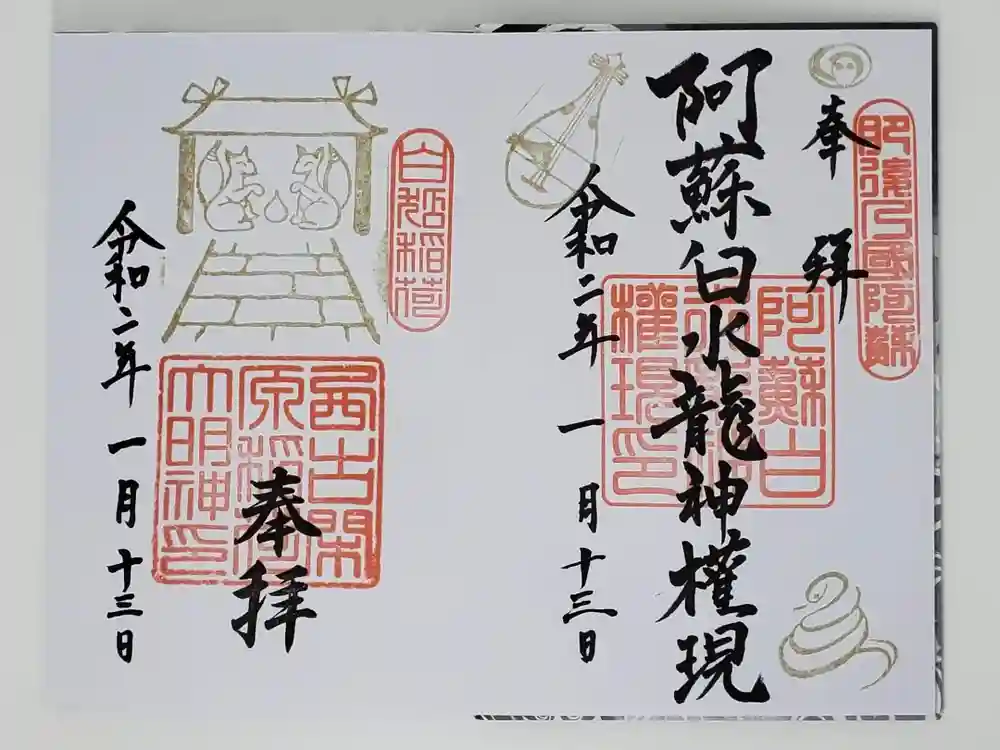 奉拝
阿蘇白水龍神權現
令和二年一月十三日
阿蘇白
水龍神
權現印
稲荷
西古閑
原稲荷
大明神印
奉拝
令和二年一月十三日